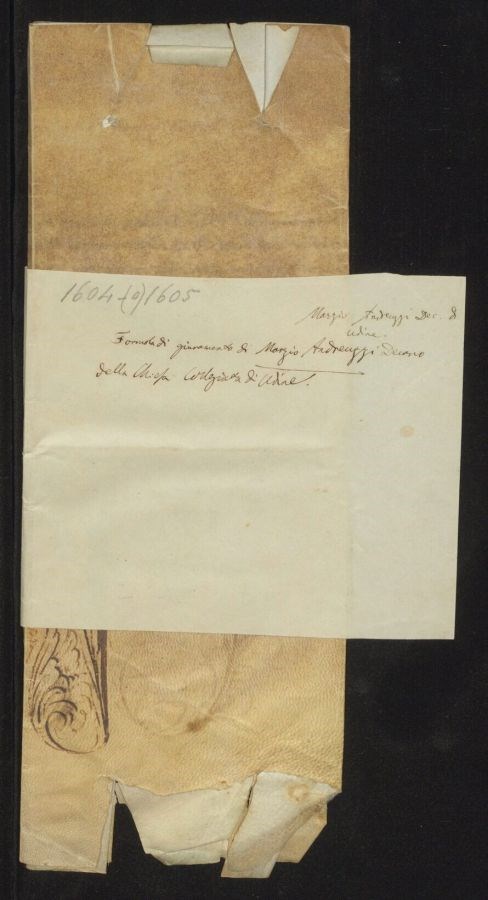 1604 (o) 1605
Marzio Andreuzzi Dec. d
Udine.
Formola di giuramento di Marzio Andreuzzi Decano
della Chiesa Collegiata di Udine.